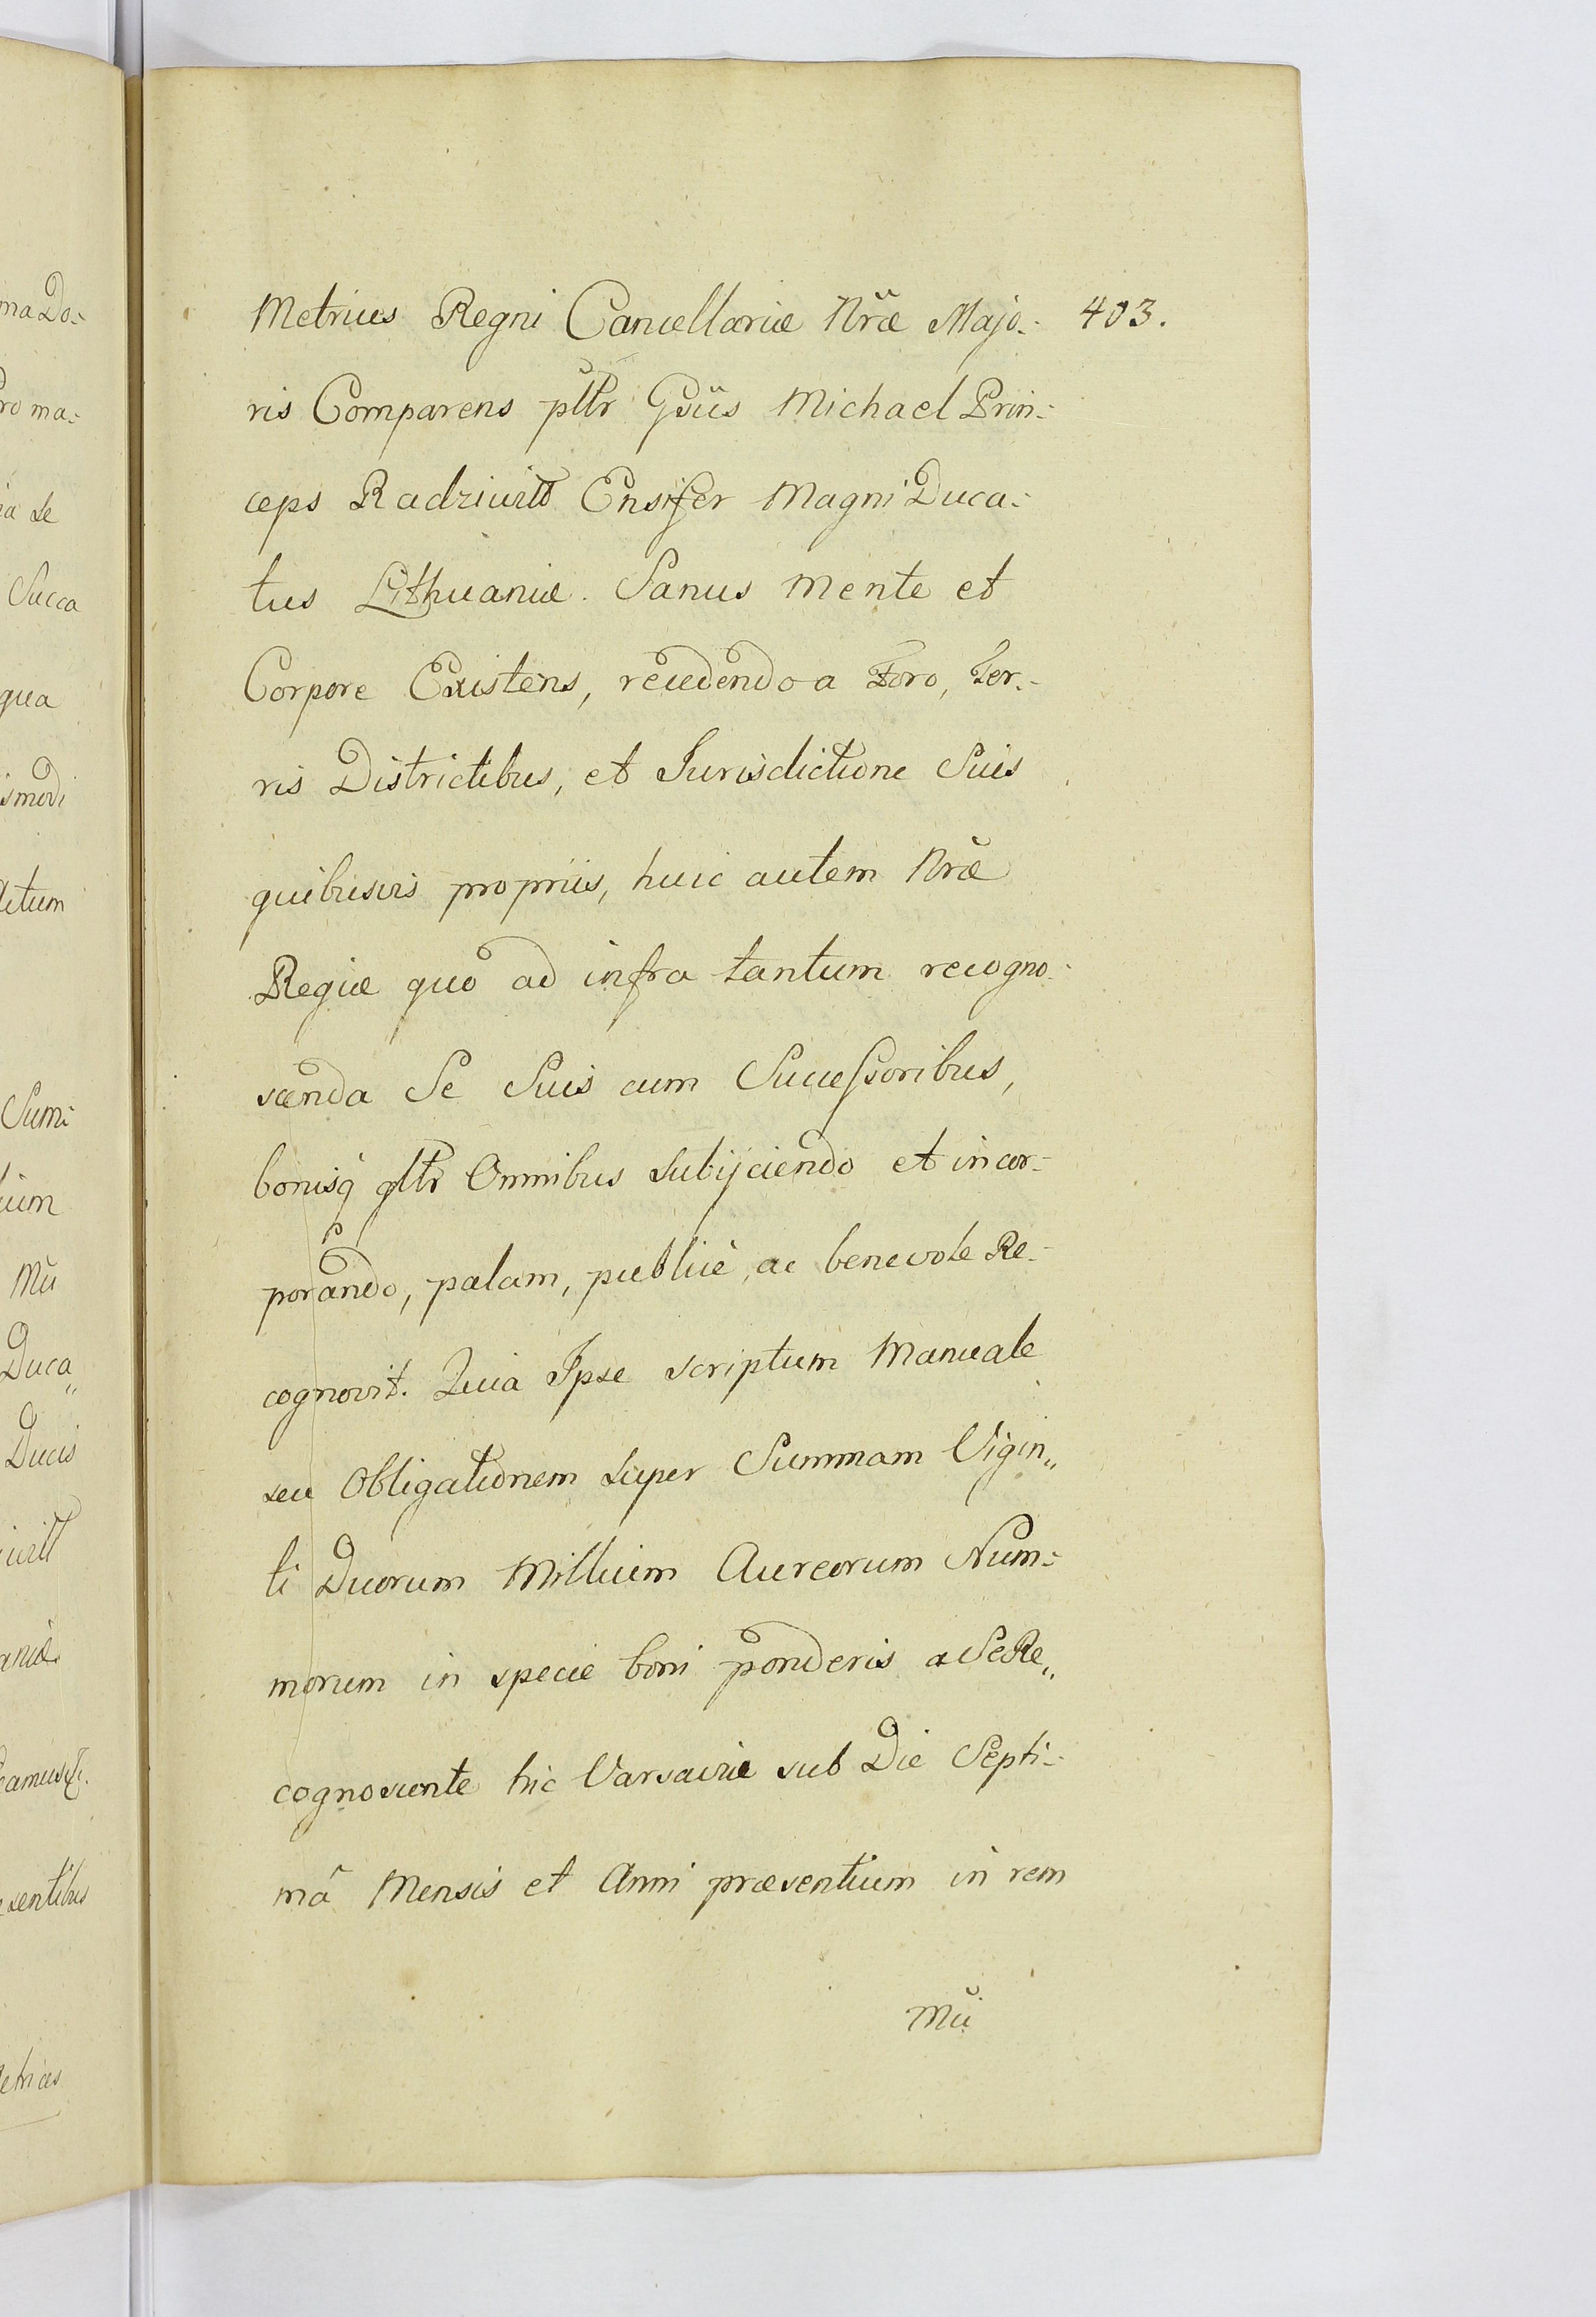 403.
Metrices Regni Cancellariæ Nræ Majo-
ris Comparens pltr Gsus Michael Prin-
ceps Radziwill Ensifer Magni Duca-
tus Lithuaniæ. Sanus mente et
Corpore Existens, recedendo a Foro, Ter-
ris Districtibus, et Jurisdictione Suis
quibusvis propriis, huic autem Nræ
Regiæ quo ad infra tantum recogno-
scenda Se Suis cum Successoribus,
bonisq gltr Omnibus subijciendo et incor-
porando, palam, publice, ac benevole Re-
cognovit. Quia Ipse scriptum Manuale
seu Obligationem super Summam Vigin„
ti Duorum Millium Aureorum Num-
morum in specie boni ponderis a Se Re„
cognoscente hic Varsaviæ sub Die Septi-
mâ Mensis et Anni præsentium in rem
Mŭ
ma Do-
ro ma-
ia se
Succa
qua
ismodi
ditum
Sumi
Mŭ
Duca„
Ducis
iwill
aniæ
camusq.
esentibus
etrices